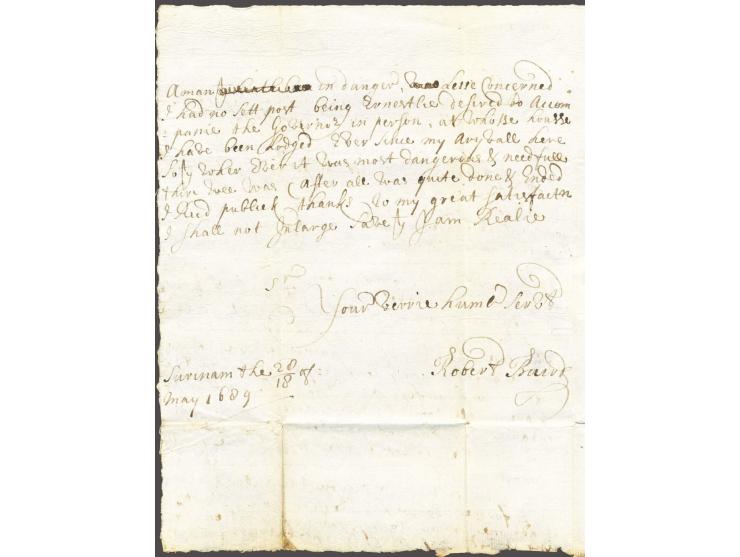 A man in danger, lesse Concerned
I had no sett post being Ernestlie desired to Accom
panie the Governor in person, at whosse housse
I have been Lodged Ever since my Aryvall here
So yt wher Ever it was most dangerous & needfull
thire wee was after all was quite done & Ended
I Reed publick thanks to my great satisfactn
I shall not Inlarge save yt I am Realie
Sr
Your verrie humle Servt
Robert Baird
Surinam the 28/18 of:
May 1689